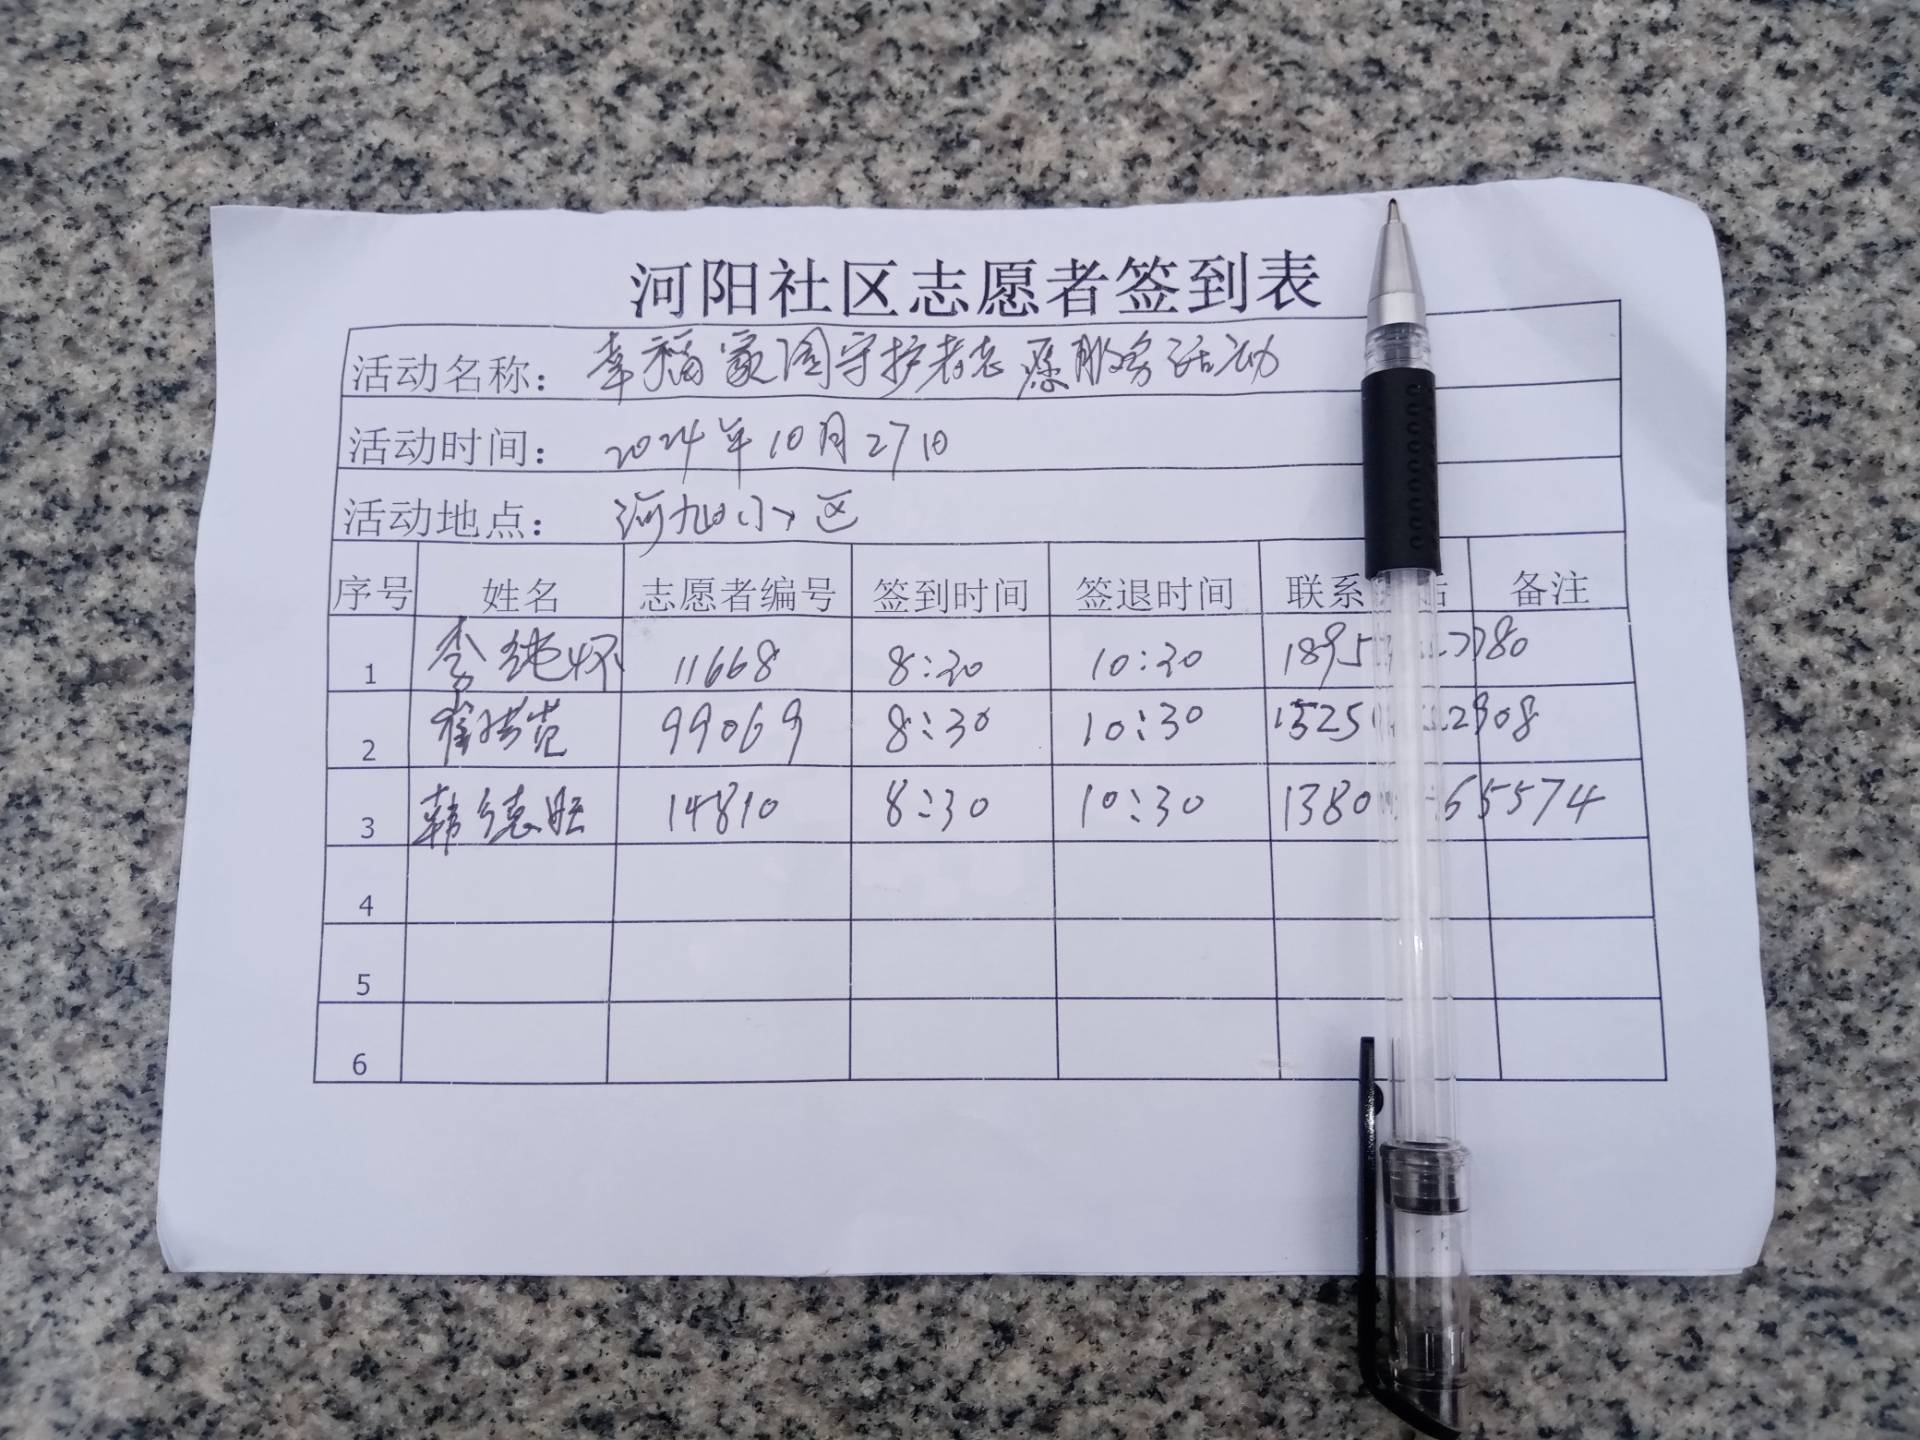 河阳社区志愿者签到表
活动名称： 幸福家园守护者志愿服务活动
活动时间： 2024年10月27日
活动地点： 河旭小区
序号 姓名 志愿者编号 签到时间 签退时间 联系 话 备注
1 李纯怀 11668 8:30 10:30 1895 780
2 99069 8:30 10:30 1525 2908
3 韩德旺 14810 8:30 10:30 1380 65574
4
5
6